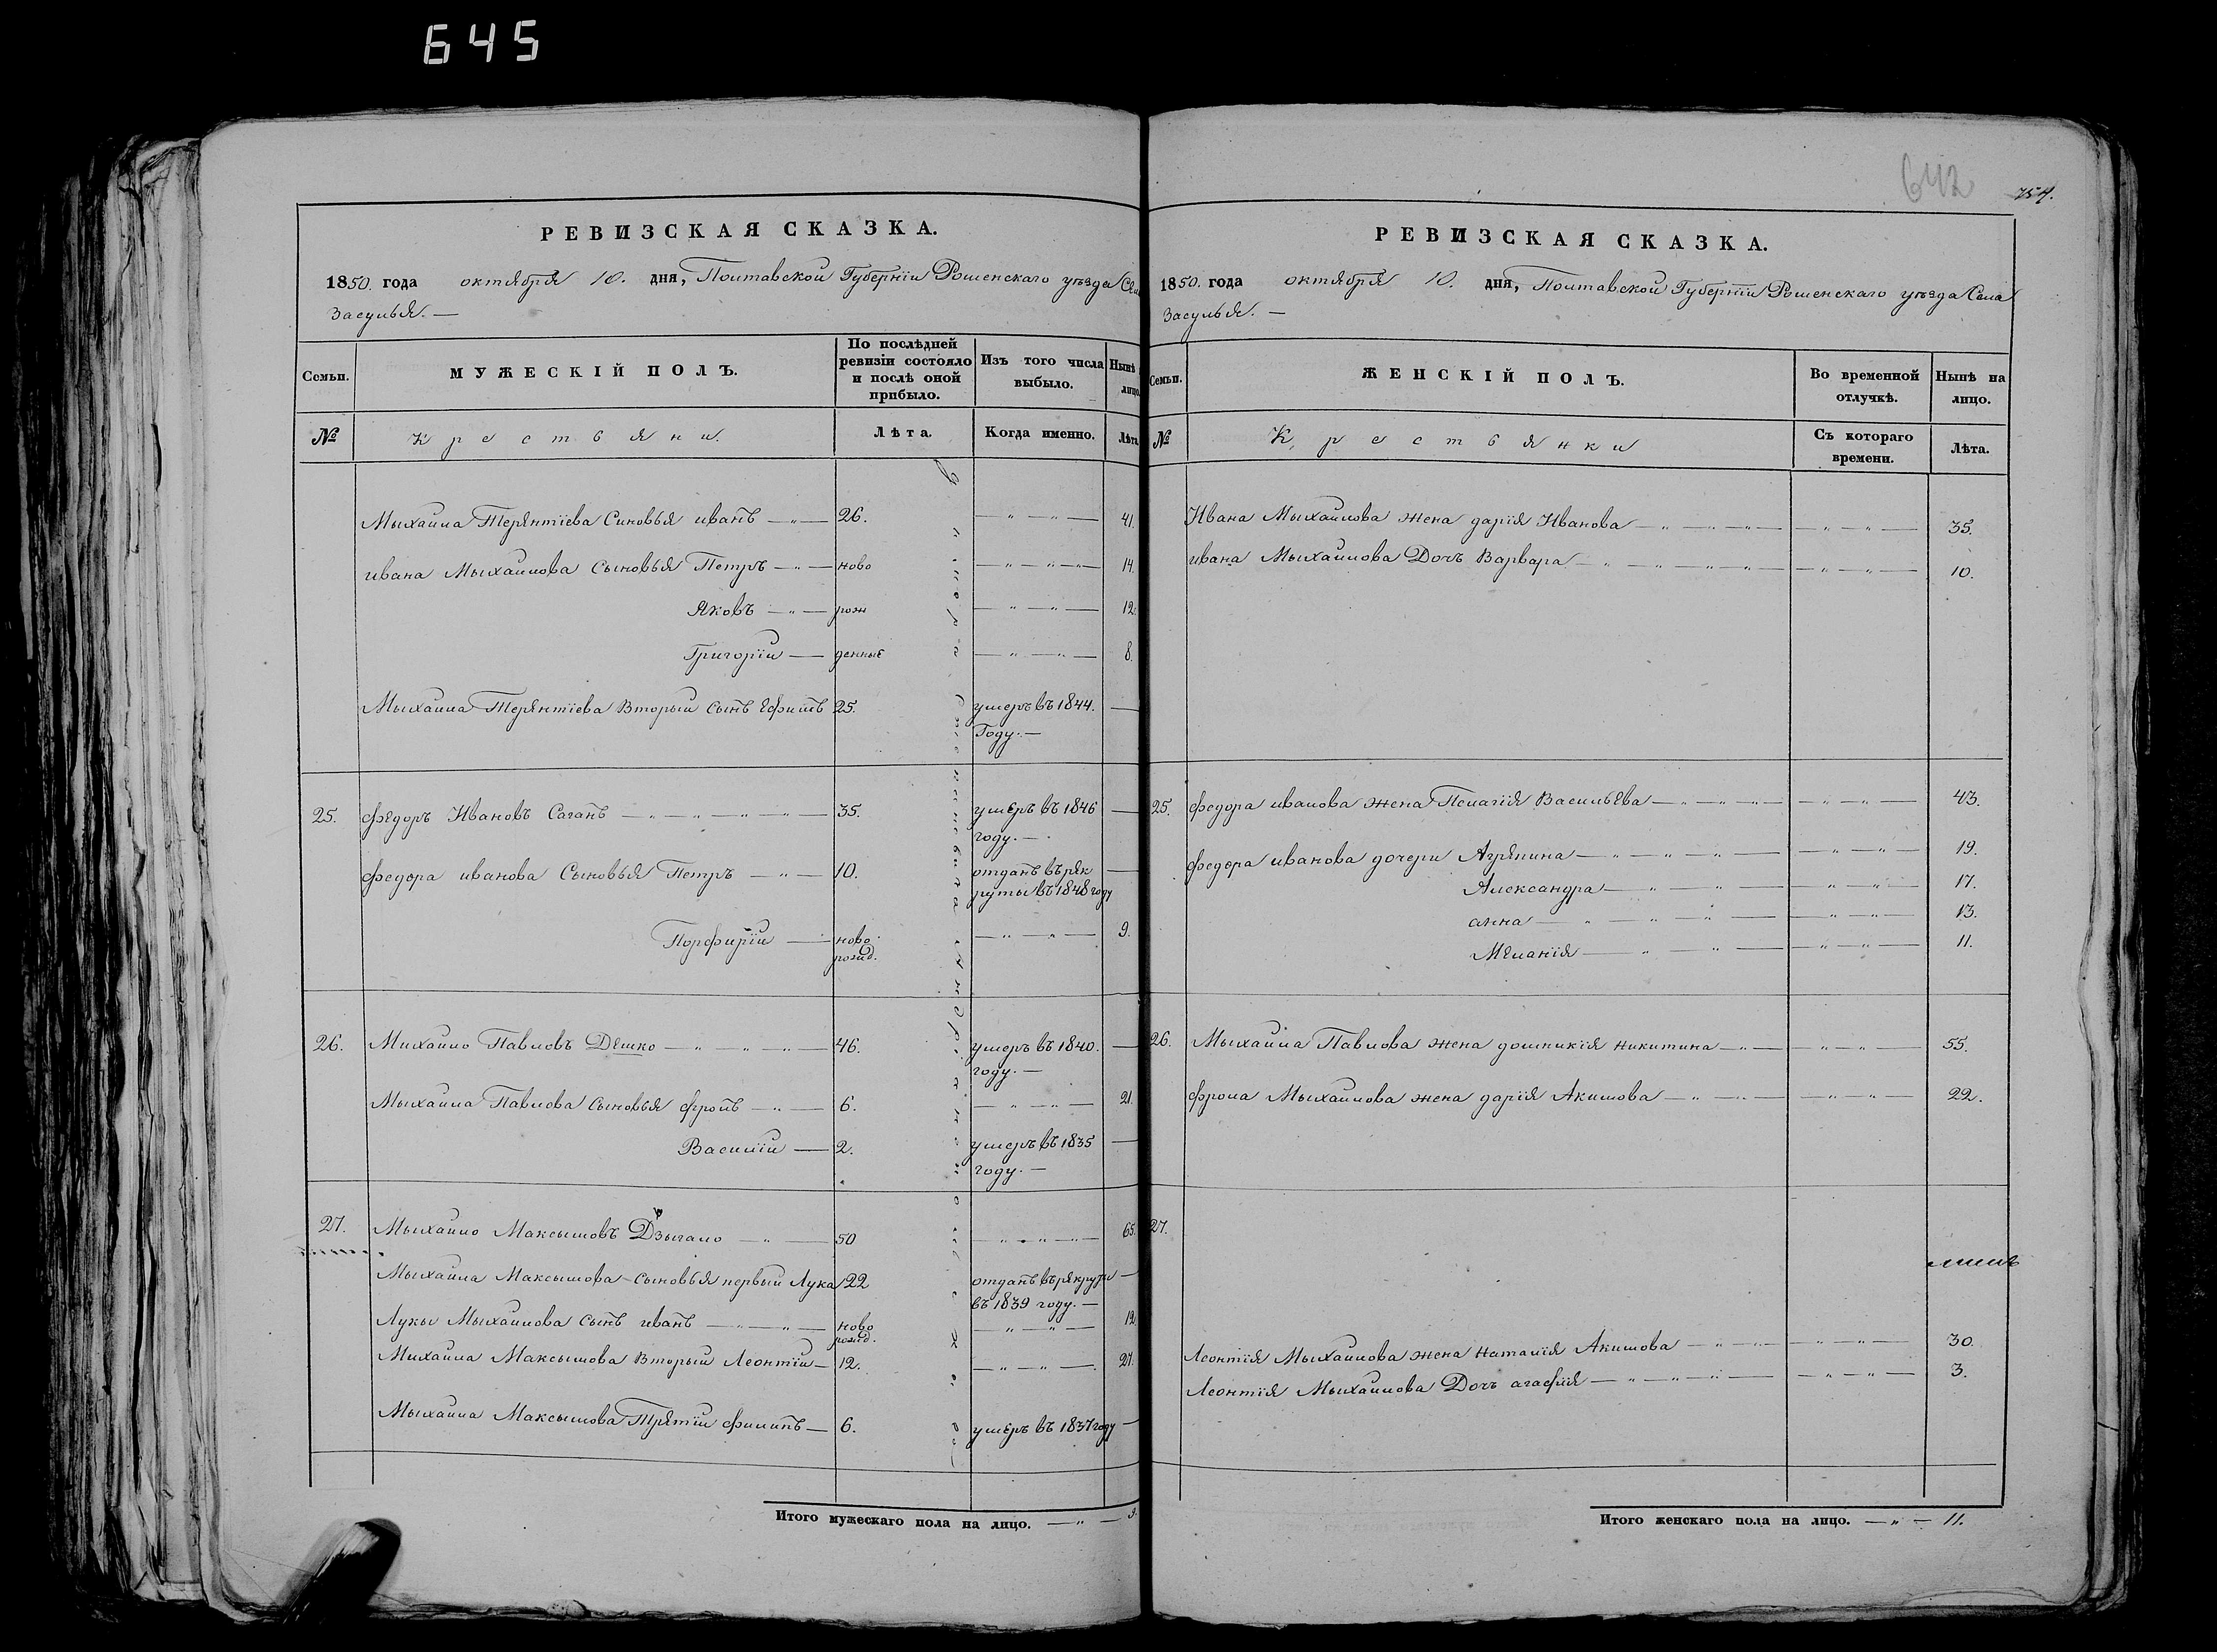 645
642
754.
РЕВИЗСКАЯ СКАЗКА.
1850. года октября 10. дня, Полтавской Губернїи Роменскаго уѣзда
Засулья. —
Семьи.
МУЖЕСКІЙ ПОЛЪ.
По послѣдней ревизіи состояло и послѣ оной прибыло.
Изъ того числа выбыло.
Нынѣ лицо
№
Крестьяни.
Лѣта.
Когда именно.
Лѣта
Мыхайла Терянтїева Синовья иванъ 26. 41.
ивана Мыхайлова Сыновья Петръ ново 14.
Яковъ рож 12.
Григорїй денные 8.
Мыхайла Терянтїева Вторый сынъ Ефимъ 25. умеръ въ 1844.
Году. —
25. федоръ Ивановъ Саганъ 35. умеръ въ 1846
году. —
федора иванова Сыновья Петръ 10. отданъ въ рек
руты въ 1848 году
Порфирїй ново 9.
рожд.
26. Михайло Павловъ Дешко 46. умеръ въ 1840.
году. —
Мыхайла Павлова сыновья фролъ 6. 21.
Василїй 2. умеръ въ 1835
году. —
27. Мыхайло Максымовъ Дзыгало 50 65.
Мыхайла Максымова сыновья первый Лука 22 отданъ въ рекруты
въ 1839 году. —
Лукы Мыхайлова сынъ иванъ ново 12
рожд.
Михайла Максымова Вторый Леонтїй 12. 27.
Мыхайла Максымова Третїй филипъ 6. умеръ въ 1837 году
Итого мужескаго пола на лицо. — „ — 9.
РЕВИЗСКАЯ СКАЗКА.
1850. года октября 10. дня, Полтавской Губернїи Роменскаго уѣзда Села
Засулья. —
Семьи.
ЖЕНСКІЙ ПОЛЪ.
Во временной отлучкѣ.
Нынѣ на лицо.
№
Крестьянки
Съ котораго времени.
Лѣта.
Ивана Мыхайлова жена дарїя Иванова 35.
ивана Мыхайлова Дочь Варвара 10.
25. федора иванова жена Пелагїя Васильева 43.
федора иванова дочери Агряпина 19.
Александра 17.
анна 13.
Меланїя 11.
26. Мыхайла Павлова жена домникїя никитина 55.
фрола Мыхайлова жена дарїя Акимова 22.
27.
Леонтїя Мыхайлова жена наталїя Акимова 30.
Леонтїя Мыхайлова Дочь агафїя 3.
Итого женскаго пола на лицо. — „ — 11.